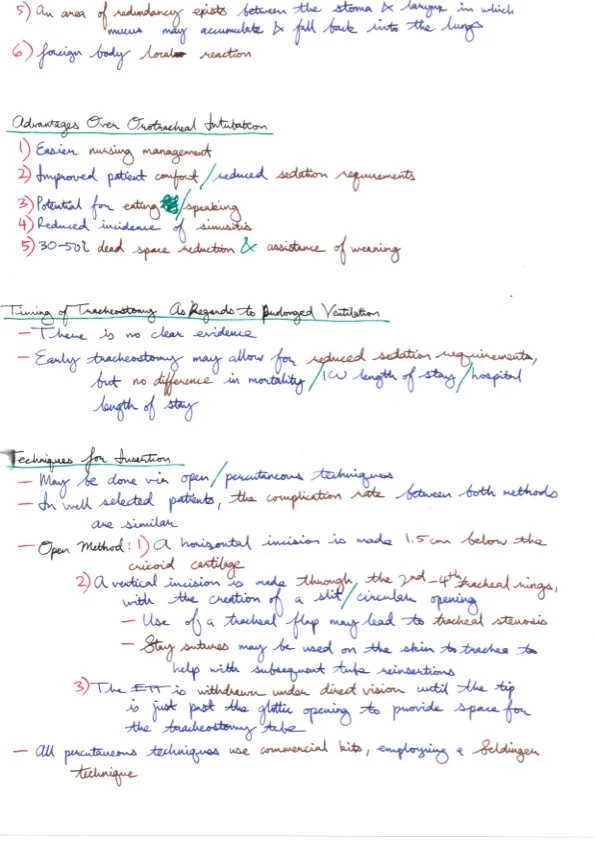 5) An area of redundancy exists between the stoma & larynx in which
mucus may accumulate & fall back into the lungs
6) foreign body local reaction
Advantages Over Orotracheal Intubation
1) Easier nursing management
2) Improved patient comfort/reduced sedation requirements
3) Potential for eating /speaking
4) Reduced incidence of sinusitis
5) 30-50% dead space reduction & assistance of weaning
Timing of Tracheostomy As Regards to Prolonged Ventilation
- There is no clear evidence
- Early tracheostomy may allow for reduced sedation requirements,
but no difference in mortality/ICU length of stay/hospital
length of stay
Techniques for Insertion
- May be done via open/percutaneous techniques
- In well selected patients, the complication rate between both methods
are similar
- Open Method: 1) A horizontal incision is made 1.5cm below the
cricoid cartilage
2) A vertical incision is made through, the 2nd-4th tracheal rings,
with the creation of a slit/circular opening
- Use of a tracheal flap may lead to tracheal stenosis
- Stay sutures may be used on the skin to trachea to
help with subsequent tube reinsertions
3) The ETT is withdrawn under direct vision until the tip
is just past the glottic opening to provide space for
the tracheostomy tube
- All percutaneous techniques use commercial kits, employing a Seldinger
technique